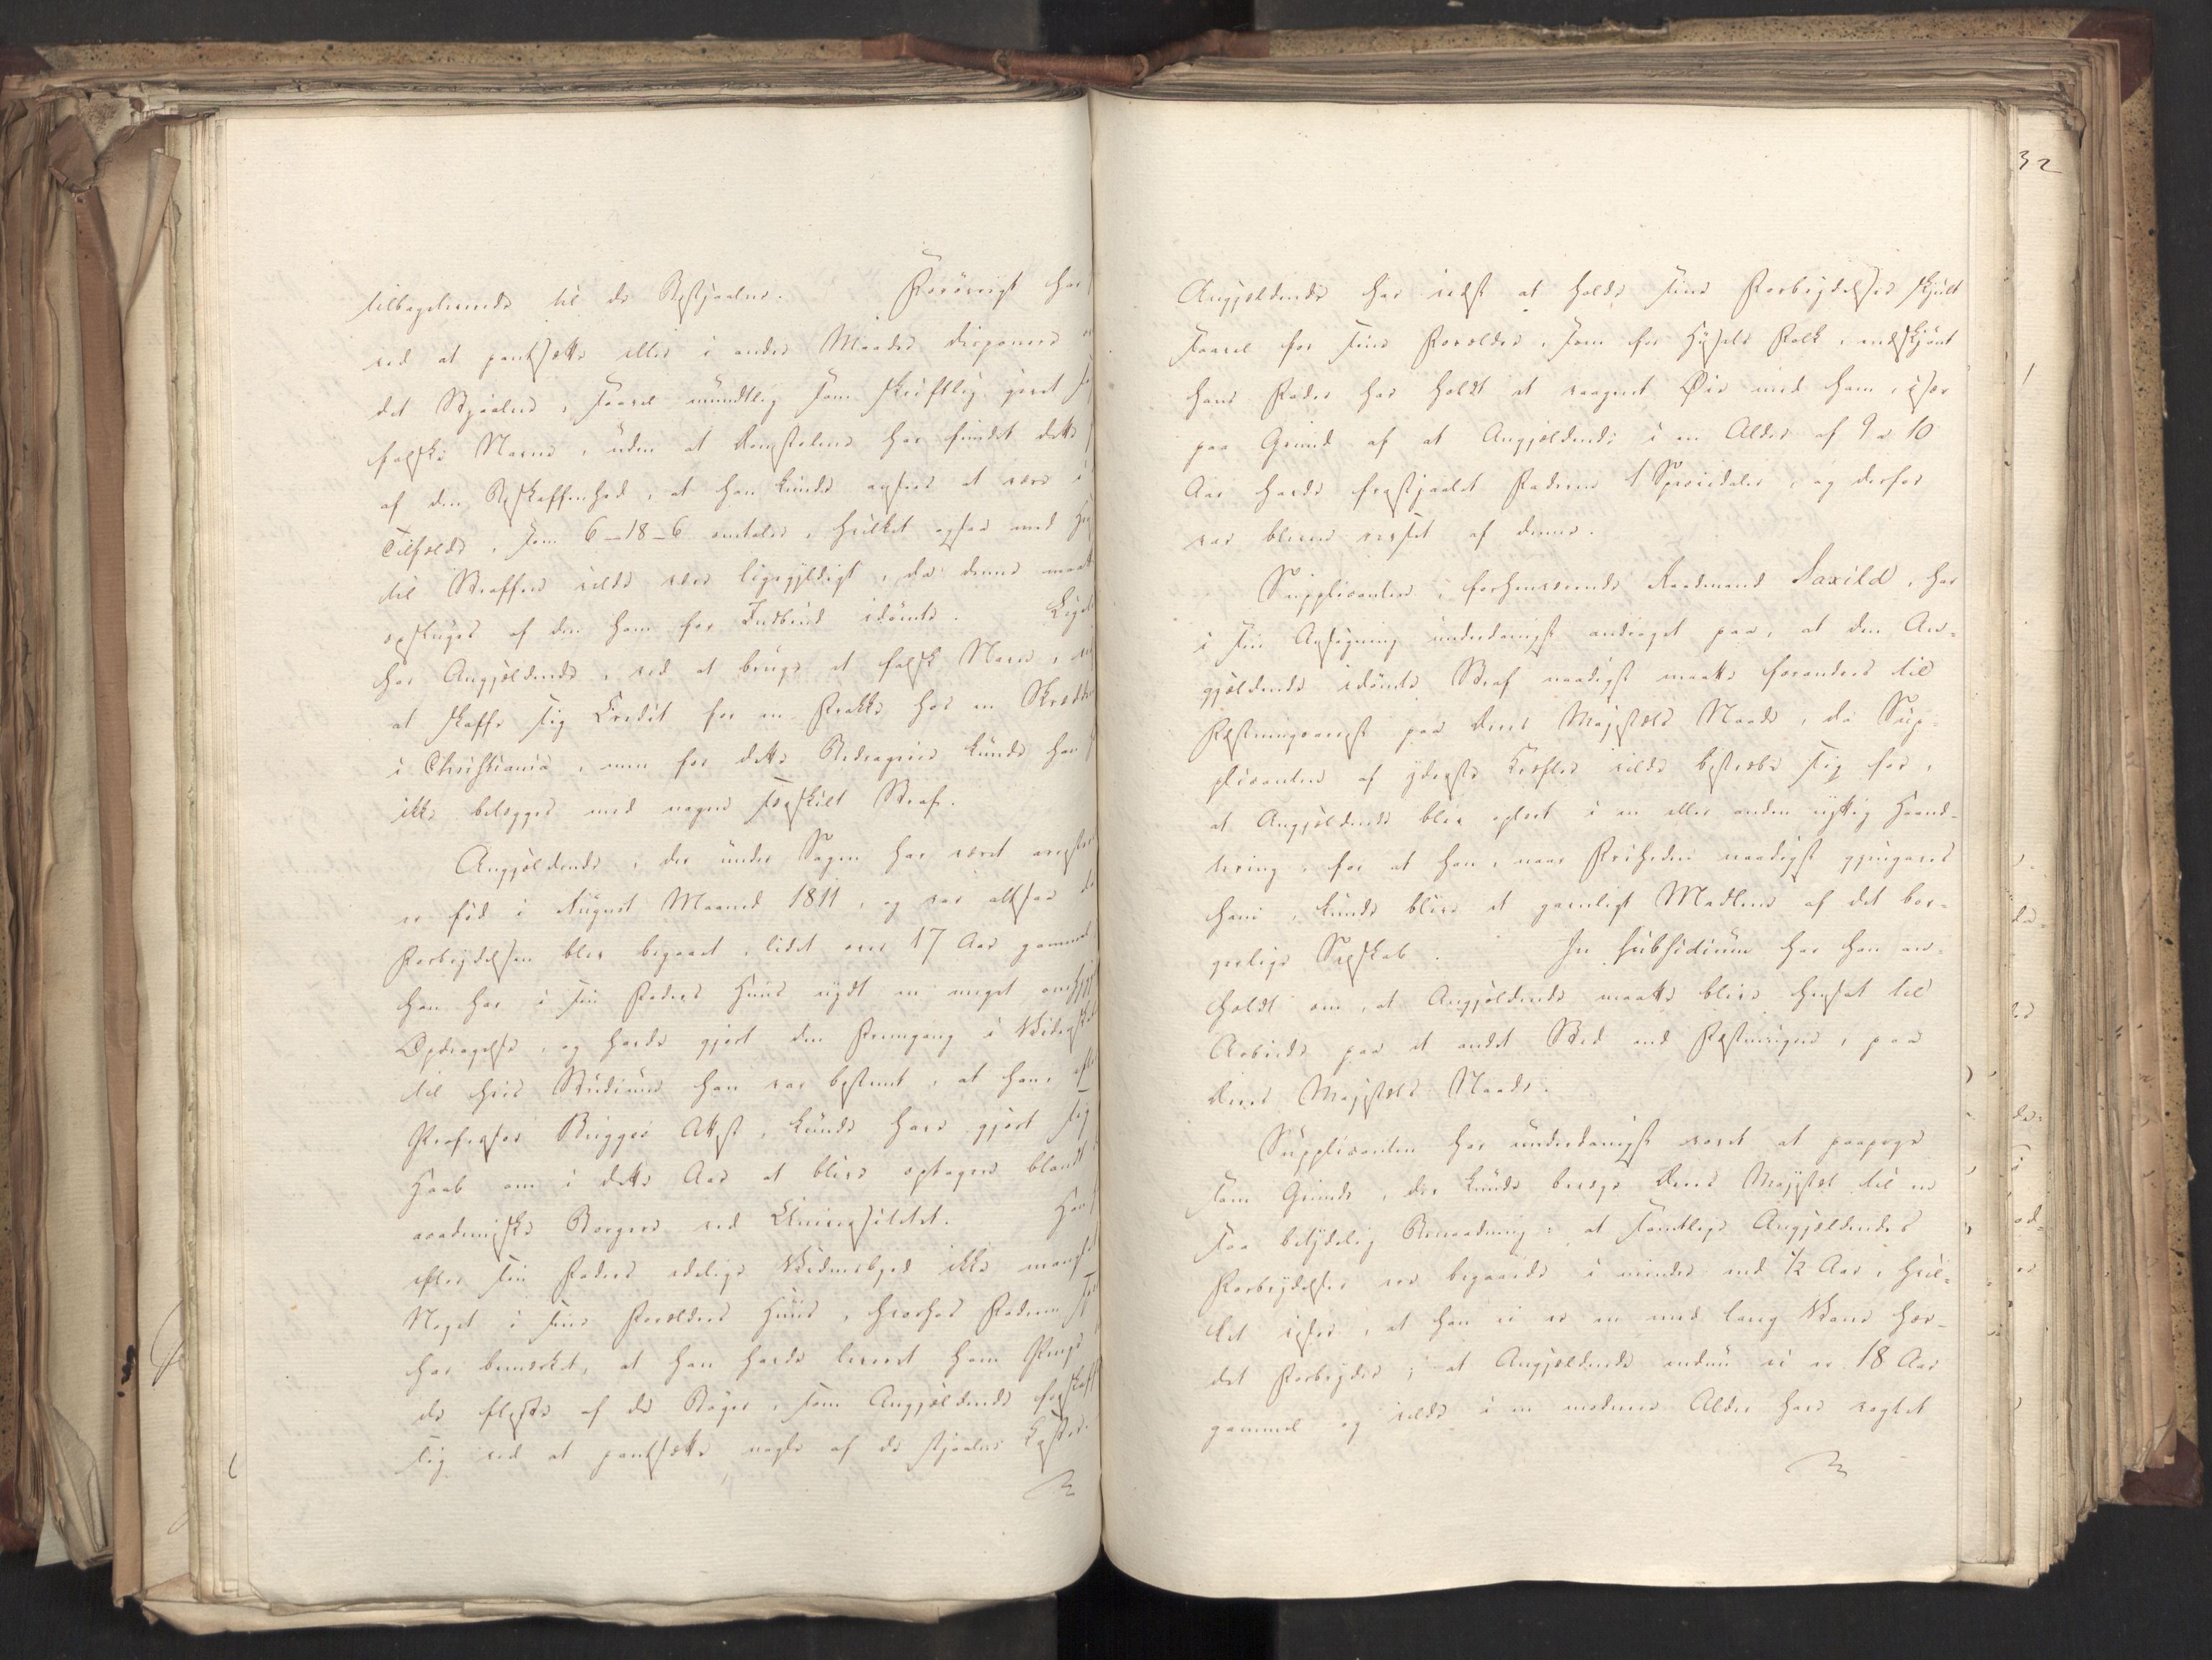 tilbageleverede til de Bestjaalne. Forövrigt har
ved at pantsætte eller i anden Maade disponere
det Stjaalne, saavel mundtlig som skriftlig givet
falske Navne, uden at Tompstolene har fundet dette
af den Beskaffenhed, at han kunde ansees at være i
Tilfælde, som 6-18-6 omtaler, hvilket ogsaa med
til Straffen vilde være ligegyldigt, da denne maatte
opsluges af den ham for Indbrud idömte. Ligeledes
har Angjeldende, ved at bruge et falsk Navn,
at skaffe sig Credit for en Frakke hos en Skrædder
i Christiania, men for dette Bedragerie kunde han
ikke belægges med nogen særskilt Straf.
Angjeldende, der under Sagen har været arresteret
er föd i August Maaned 1811, og var altsaa da
Forbrydelsen blev begaaet, lidt over 17 Aar gammel
han har i sin Faders Huus nydt en meget omhyggelig
Opdragelse, og havde gjort den Fremgang i Videnskab
til hvis Studium han var bestemt, at han, efter
Professor Brigges Attest, kunde have gjort sig
Haab om i dette Aar at blive optagen blandt
academiske Borgere ved Universitetet. Han
efter sin Faders edelige Vidnesbyrd ikke manglet
Noget i sine Forældres Huus, hvorhos Faderen
har bemærket, at han havde leveret ham Penge
de fleste af de Böger, som Angjeldende forskaffede
sig ved at pantsætte nogle af de stjaalne Koster.
Angjeldende har vidst at holde sine Forbrydelser skjult
saavel for sine Forældre, som for Husets Folk, endskjönt
hans Fader har holdt et vaagent Öie med ham, især
paa Grund af at Angjeldende i en Alder af 9 a 10
Aar havde frastjaalet Faderen 1 Speciedaler, og derfor
var bleven revset af denne.
Supplicanten, forhenværende Raadmand Saxild, har
i sin Ansögning underdanigst andraget paa, at den An-
gjeldende idömte Straf naadigst maatte forandres til
Fæstningsarrest paa Deres Majestæts Naade, da Sup-
plicanten af yderste Kræfter vilde bestræbe sig for,
at Angjeldende blev oplært i en eller anden nyttig Haand-
tering, for at han, naar Friheden naadigst gjengaves
ham, kunde blive et gavnligt Medlem af det bor-
gerlige Selskab. In subsidium har han an-
holdt om, at Angjeldende maatte blive hensat til
Arbeide paa et andet Sted end Fæstningen, paa
Deres Majestæts Naade.
Supplicanten har underdanigst voret at paapege
som Grunde, der kunde bevæge Deres Majestæt til en
saa betydelig Benaadning: at samtlige Angjeldendes
Forbrydelser ere begaaede i mindre end ½ Aar, hvil-
ket viser, at han ei er en med lang Vane hær-
det Forbryder; at Angjeldende endnu ei er 18 Aar
gammel og vilde i en modnere Alder have vogtet
32